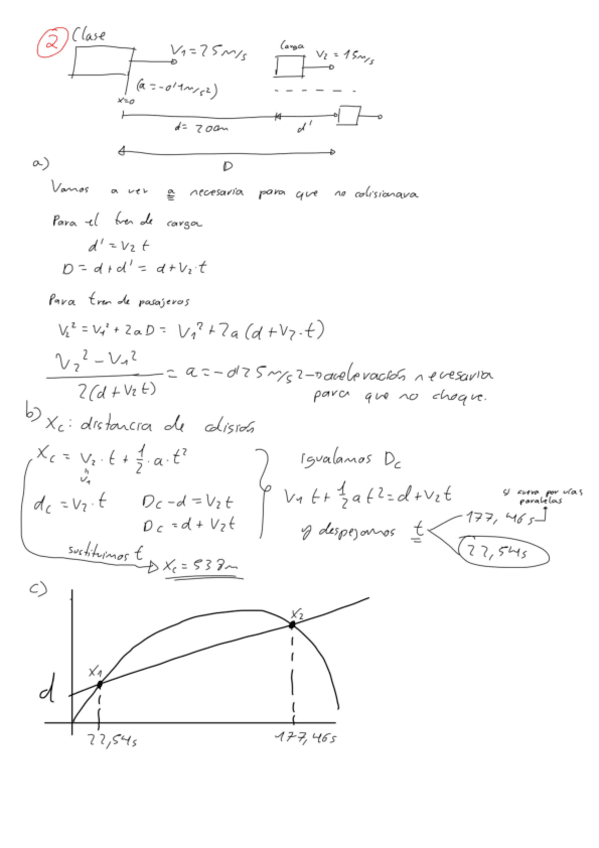 2 Clase
V1 = 25 m/s
Carga
V2 = 15 m/s
(a = -0'1 m/s²)
x=0
d = 200m
d'
D
a)
Vamos a ver a necesaria para que no colisionara
Para el tren de carga
d' = V2 t
D = d + d' = d + V2 · t
Para tren de pasajeros
V2² = V1² + 2aD = V1² + 2a (d + V2 · t)
V2² - V1² / 2(d + V2 t) = a = -0'25 m/s² → aceleración necesaria
para que no choque.
b) Xc: distancia de colisión
Xc = V2 · t + 1/2 · a · t²
V1
igualamos Dc
dc = V2 · t
Dc - d = V2 t
Dc = d + V2 t
V1 t + 1/2 a t² = d + V2 t
si fuera por vías
paralelas
177,46s
y despejamos t
22,54s
sustituimos t
Xc = 538m
c)
X1
X2
d
22,54s
177,46s